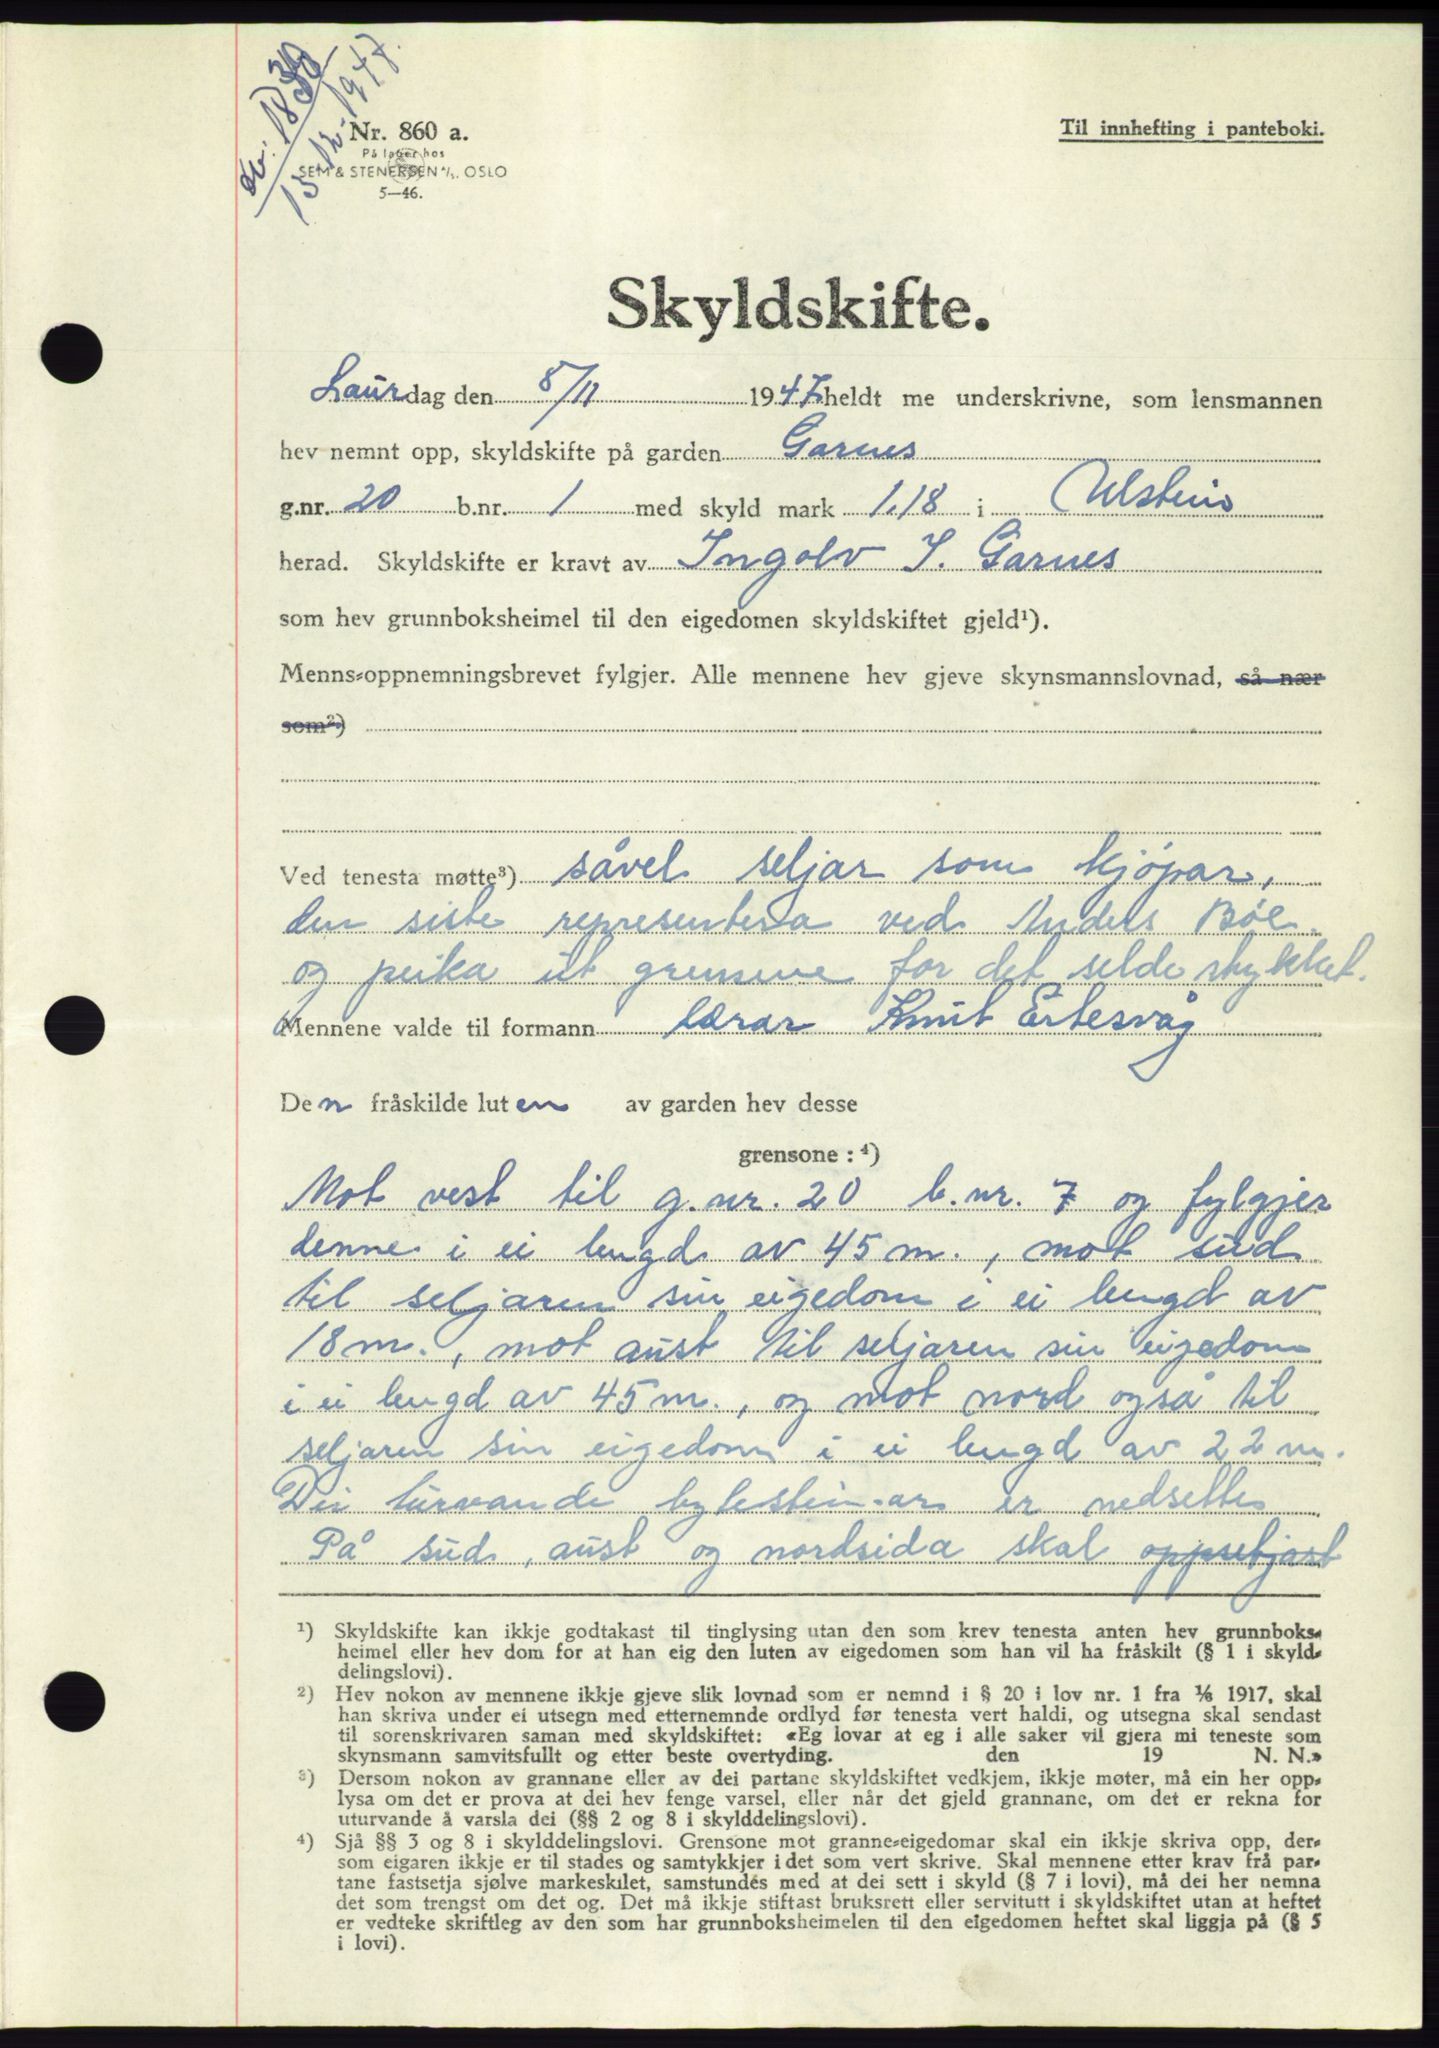 Nr. 1839
15-12-1947.
Nr. 860 a.
På lager hos
SEM & STENERSEN A/S, OSLO
5—46.
Til innhefting i panteboki.
Skyldskifte.
Laurdag den 8/11 1947 heldt me underskrivne, som lensmannen
hev nemnt opp, skyldskifte på garden Garnes
g.nr. 20 b.nr. 1 med skyld mark 1.18 i Ulstein
herad. Skyldskifte er kravt av Ingolv I. Garnes
som hev grunnboksheimel til den eigedomen skyldskiftet gjeld¹).
Menns-oppnemningsbrevet fylgjer. Alle mennene hev gjeve skynsmannslovnad, så nær
som²)
Ved tenesta møtte³) såvel seljar som kjøpar,
den siste representera ved Anders Bøe
og peika ut grensene for det selde stykket.
Mennene valde til formann lærar Knut Ertesvåg
Den fråskilde luten av garden hev desse
grensone : ⁴)
Mot vest til g.nr. 20 b.nr. 7 og fylgjer
denne i ei lengd av 45 m., mot sud
til seljaren sin eigedom i ei lengd av
18 m., mot aust til seljaren sin eigedom
i ei lengd av 45 m., og mot nord også til
seljaren sin eigedom i ei lengd av 22 m.
Dei turvande bytesteinar er nedsette
På sud, aust og nordsida skal oppsetjast
¹) Skyldskifte kan ikkje godtakast til tinglysing utan den som krev tenesta anten hev grunnboks-
heimel eller hev dom for at han eig den luten av eigedomen som han vil ha fråskilt (§ 1 i skyld-
delingslovi).
²) Hev nokon av mennene ikkje gjeve slik lovnad som er nemnd i § 20 i lov nr. 1 fra ⅙ 1917, skal
han skriva under ei utsegn med etternemnde ordlyd før tenesta vert haldi, og utsegna skal sendast
til sorenskrivaren saman med skyldskiftet: «Eg lovar at eg i alle saker vil gjera mi teneste som
skynsmann samvitsfullt og etter beste overtyding. den 19 N. N.»
³) Dersom nokon av grannane eller av dei partane skyldskiftet vedkjem, ikkje møter, må ein her opp-
lysa om det er prova at dei hev fenge varsel, eller når det gjeld grannane, om det er rekna for
uturvande å varsla dei (§§ 2 og 8 i skylddelingslovi).
⁴) Sjå §§ 3 og 8 i skylddelingslovi. Grensone mot granne-eigedomar skal ein ikkje skriva opp, der-
som eigaren ikkje er til stades og samtykkjer i det som vert skrive. Skal mennene etter krav frå par-
tane fastsetja sjølve markeskilet, samstundes med at dei sett i skyld (§ 7 i lovi), må dei her nemna
det som trengst om det og. Det må ikkje stiftast bruksrett eller servitutt i skyldskiftet utan at heftet
er vedteke skriftleg av den som har grunnboksheimelen til den eigedomen heftet skal liggja på (§ 5
i lovi).